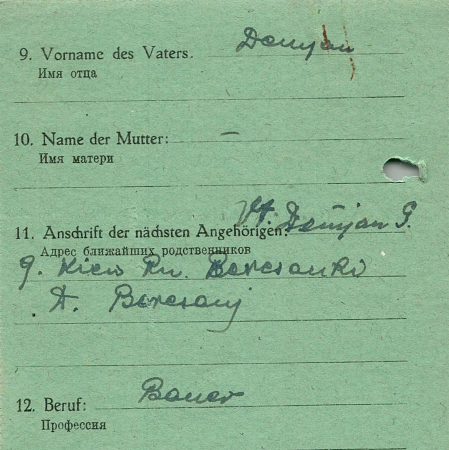 9. Vorname des Vaters. Demjan
Имя отца
10. Name der Mutter: –
Имя матери
Vt. Demjan G.
11. Anschrift der nächsten Angehörigen:
Адрес ближайших родственников
g. Kiew Rn. Beresanki
D. Beresanj
12. Beruf: Bauer
Профессия